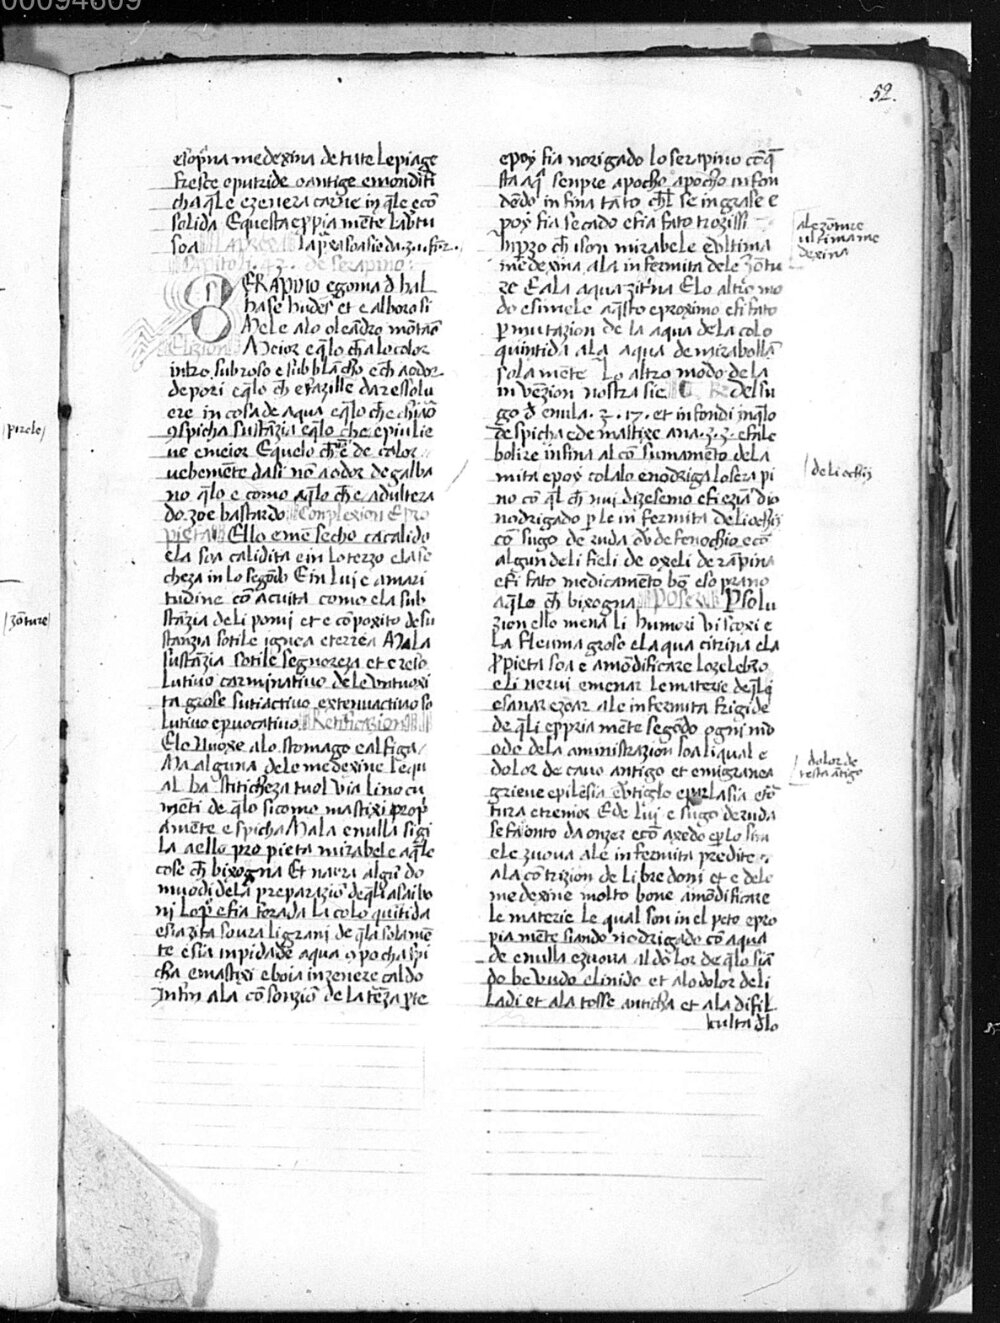 00094609
52.
e sopra medexina de tute le piage
fresche e putride o antige e mondifi
cha q̄le e zenera carne in q̄le e cō
solida E questa e ppia mēte la vtu
soa
Capitolo . 43 . de serapino :
SERAPINO e goma d hal
intro, sub roso e sub blācho e ch a odor
de pori e q̄lo ch e fazille da ressolu
ere in cosa de aqua e q̄lo che chiāo
9spicha sustāzia e q̄lo che e piu lie
ue e meior E quelo ch e de color
uehemēte dasi nō a odor de galba
no q̄lo e como aq̄lo ch e adultera
do. zoe bastardo Complexion e pro
pieta Ello e me secho ca calido
e la soa calidita e in lo terzo e la se
cheza in lo segōdo E in lui e amari
tudine cō acuita como e la sub
stāzia de li pomi et e cōpoxito de su
stanzia sotile ignea e terrea Ma la
sustāzia sotile segnoreza et e reso
lutiuo carminatiuo de le vintuoxi
ta grose sutiactiuo extenuactiuo so
lutiuo e puocatiuo Retificazion
Elo nuoxe a lo stomago e al figa/
Ma alguna de le medexine lequ
al ha stiticheza tuol via li nocu
mēti de q̄lo si como mastixi e prop
amēte e spicha Ma la enulla sigi
la a ello pro pieta mirabele a q̄le
cose ch bixogna Et narra algū do
muodi de la preparaziō de q̄li asaibo
ni Lo p̄ e fia forada la colo quītida
e sia zita soura li grani de q̄la solamē
te e sia inpida de aqua 9 pocha spi
cha e mastixi e boia in zenere caldo
Infin a la cō sonziō de la terza pte
e poy fia norigado lo serapino cō q̄
sta aq̄ senpre a pocho a pocho infon
dēdo in fina tāto chel se ingrase e
poy fia secado e fia fato trozissi
medexina, a la infermita de le zōtu
re E a la aqua zitrina E lo altro mo
do e simele a q̄sto e proximo e fi fato
p mutazion de la aqua de la colo
quintida a la aqua de mirabollā
sola mēte Lo altro modo de la
in vēzion nostra si e R de l su
go d enula . 3 . 17 . et infondi in q̄lo
de spicha e de mastixe ana . 3 . 3 . e fa le
bolire in fin a al cō sumamēto de la
mita e poy colalo e nodriga lo serapi
no cō q̄l ch nui dizesemo e fi eziā dio
nodrigado p le in fermita de li ochi
cō sugo de ruda o de fenochio e cō
algun de li fieli de oxeli de rapina
e fi fato medicamēto bō e soprano
a q̄lo ch bixogna Posexe Psolu
zion ello mena li humori viscoxi e
la fleuma groso e la qua citrina e la
ppieta soa e a mōdificare lo zelebro
e li nerui e menar le materie de q̄li
e sanar eziar a le infermita frigide
de q̄li e ppria mēte segōdo ogni mo
do de la aministrazion soa li qual e
dolor de cauo antigo et emigranea
tura e tremor E de lui e sugo de ruda
se fa onto da onzer e cō axedo e p lo stra
e le zuoua a le infermita predite
a la cōtrizion de li bredoni et e de le
medexine molto bone a mōdificare
le materie le qual son in el peto e pro
pia mēte siando nodrigado cō aqua
de enulla e zuoua al dolor de q̄lo siā
do beuudo e linido et a lo dolor de li
ladi et a la tosse anticha et a la difil
kulta de lo
a le zōture
ultima me
dexina
de li ochij
dolor de
testa ātigo
zōture